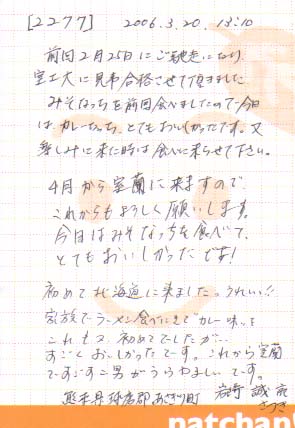 [2277] 2006.3.20. 13:10
前回2月25日にご馳走になり
室工大に見事合格させて頂きました
みそなっちを前回食べましたので今日
は、カレーなっち、とてもおいしかったです。又
楽しみに来た時は食べに来らせて下さい。
4月から室蘭に来ますので、
これからもよろしく願いします。
今日はみそなっちを食べて、
とてもおいしかったです!
初めて北海道に来ましたっうれしい!!
家族でラーメン食べにきてカレー味って
これも又、初めてでしたが…
すごくおいしかったです。これから室蘭
ですごす二男がうらやましいです。
熊本県球磨郡あさぎり町 誠
さつき
patchan